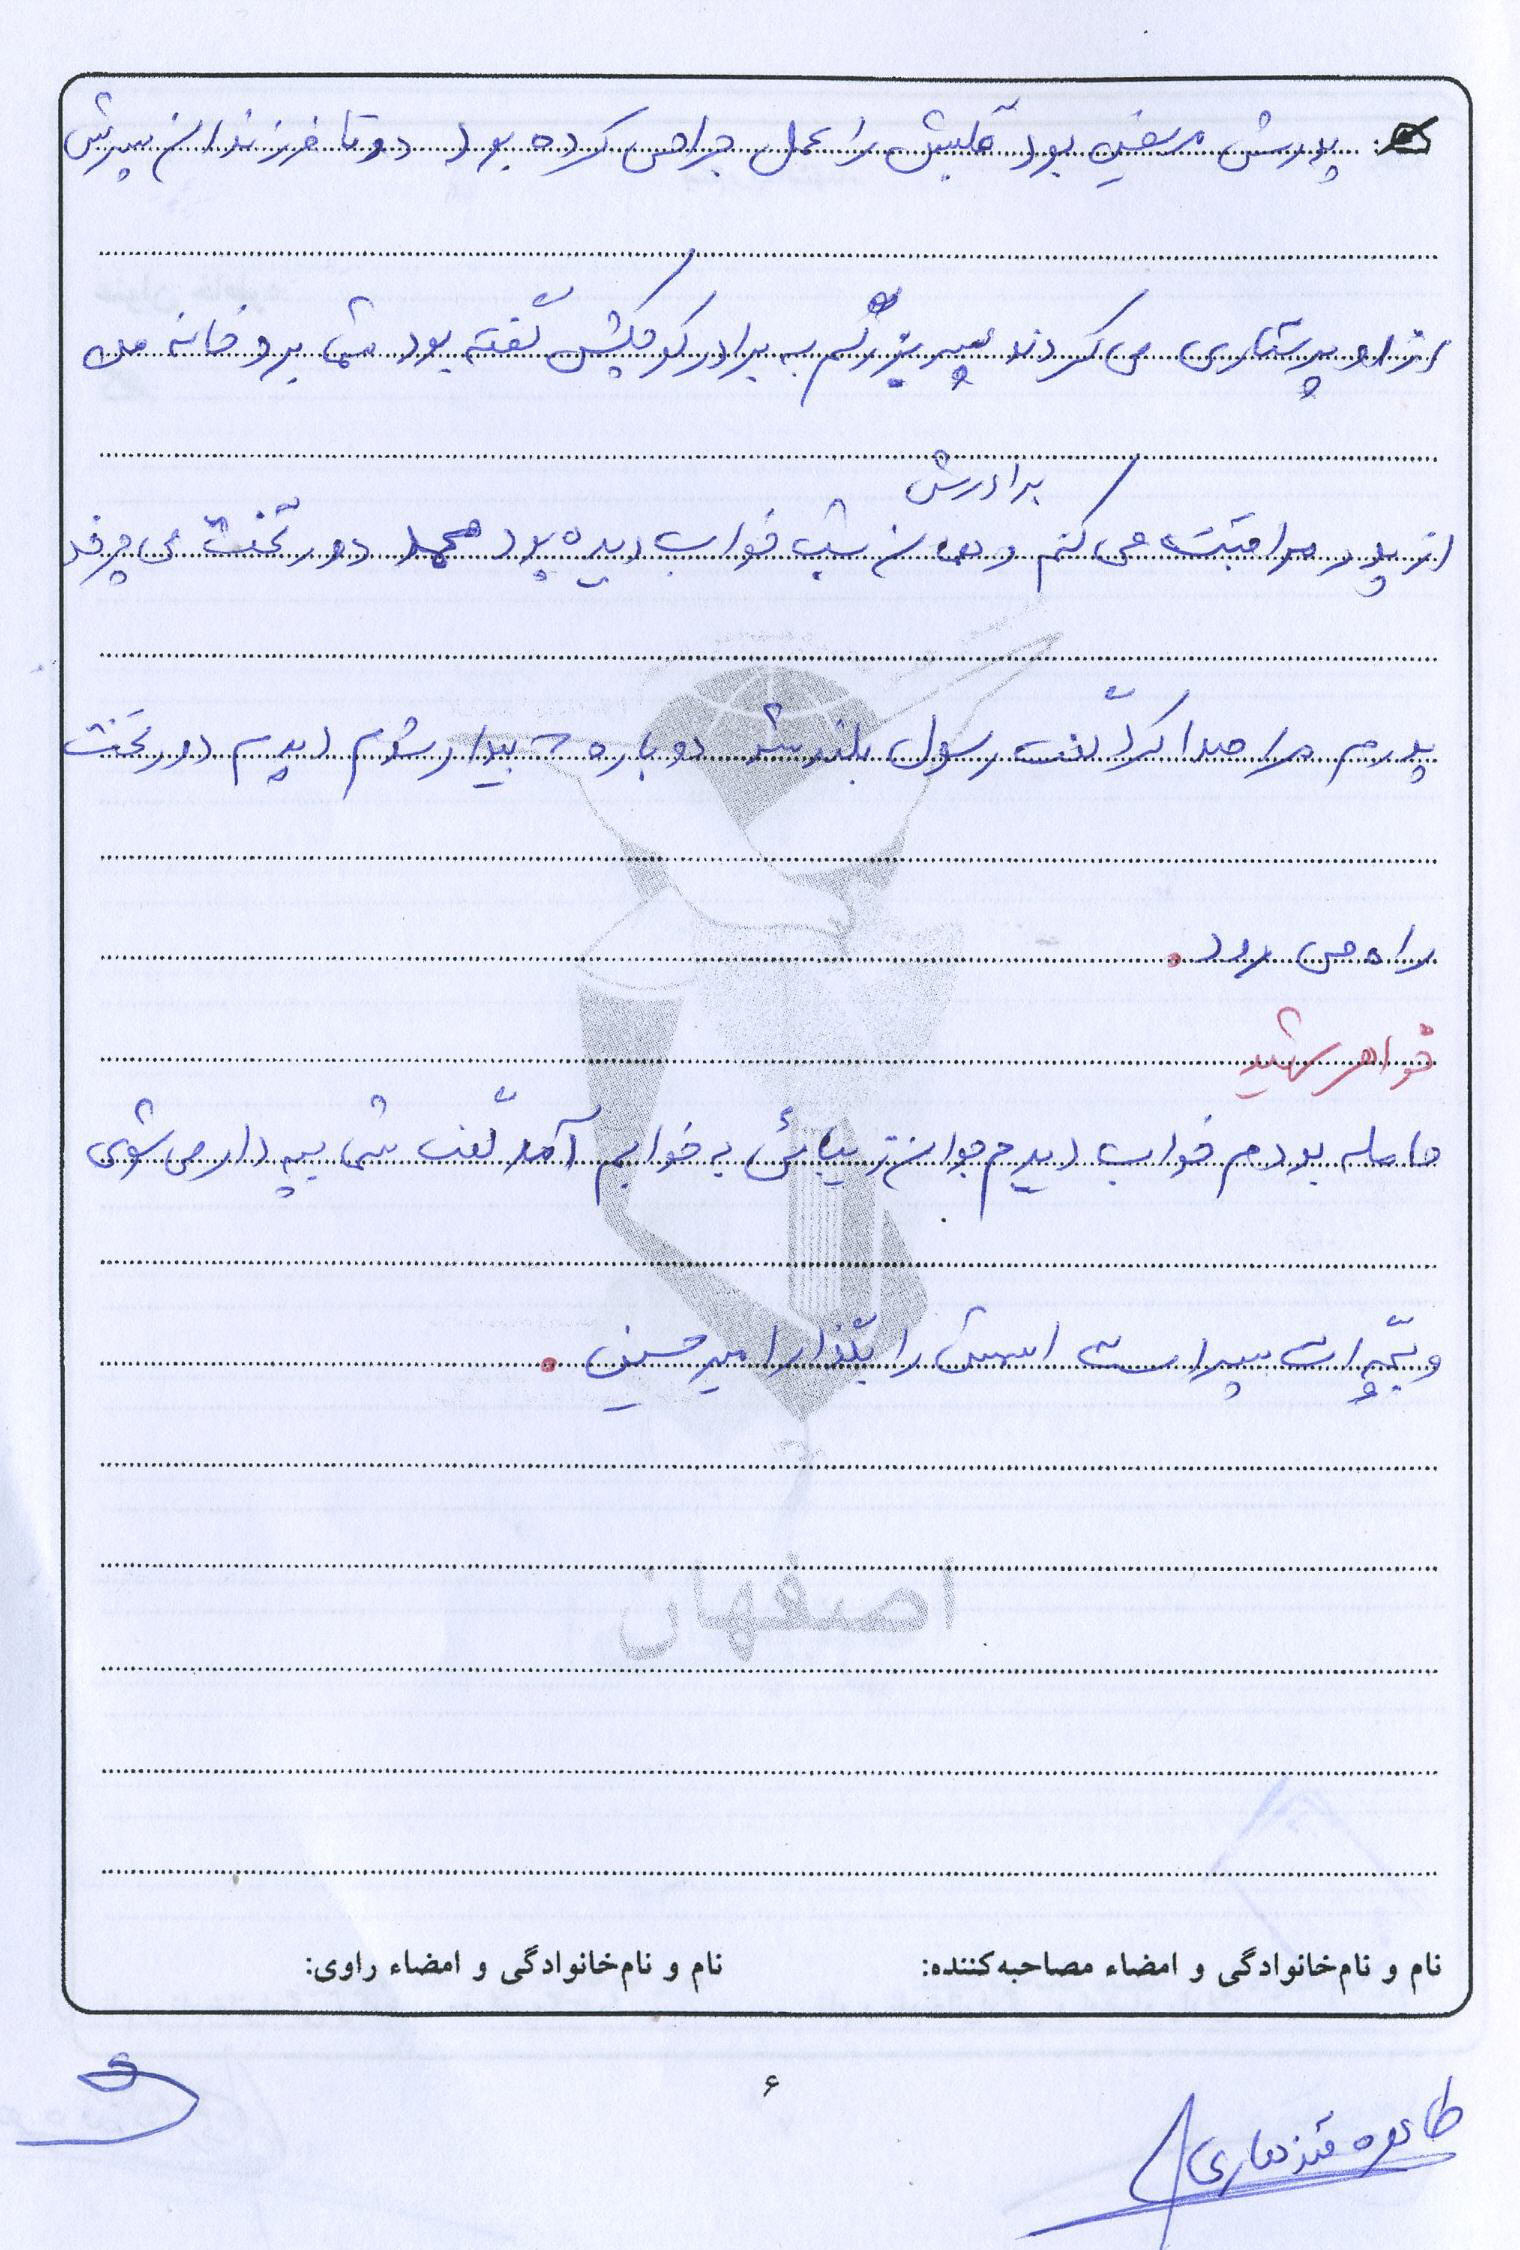 پدرش مریض بود قلبش را عمل جراحی کرده بود دوتا فرزندان پسرش
از او پرستاری می کردند پسر بزرگم به برادر کوچکش گفته بود شما برو خانه من
برادرش
از پدر مراقبت می کنم و همان شب خواب دیده بود محمد دور تخت می چرخد
پدرم مرا صدا کرد گفت رسول بلند شو دوباره بیدار شدم دیدم دور تخت
راه می رود.
خواهر شهید
حامله بودم خواب دیدم جوان زیبائی به خوابم آمد گفت شما بچه دار می شوی
و بچه ات پسر است اسمش را بگذار امیرحسین.
اصفهان
نام و نام‌خانوادگی و امضاء مصاحبه‌کننده: نام و نام‌خانوادگی و امضاء راوی:
۶
طاهره قندهاری